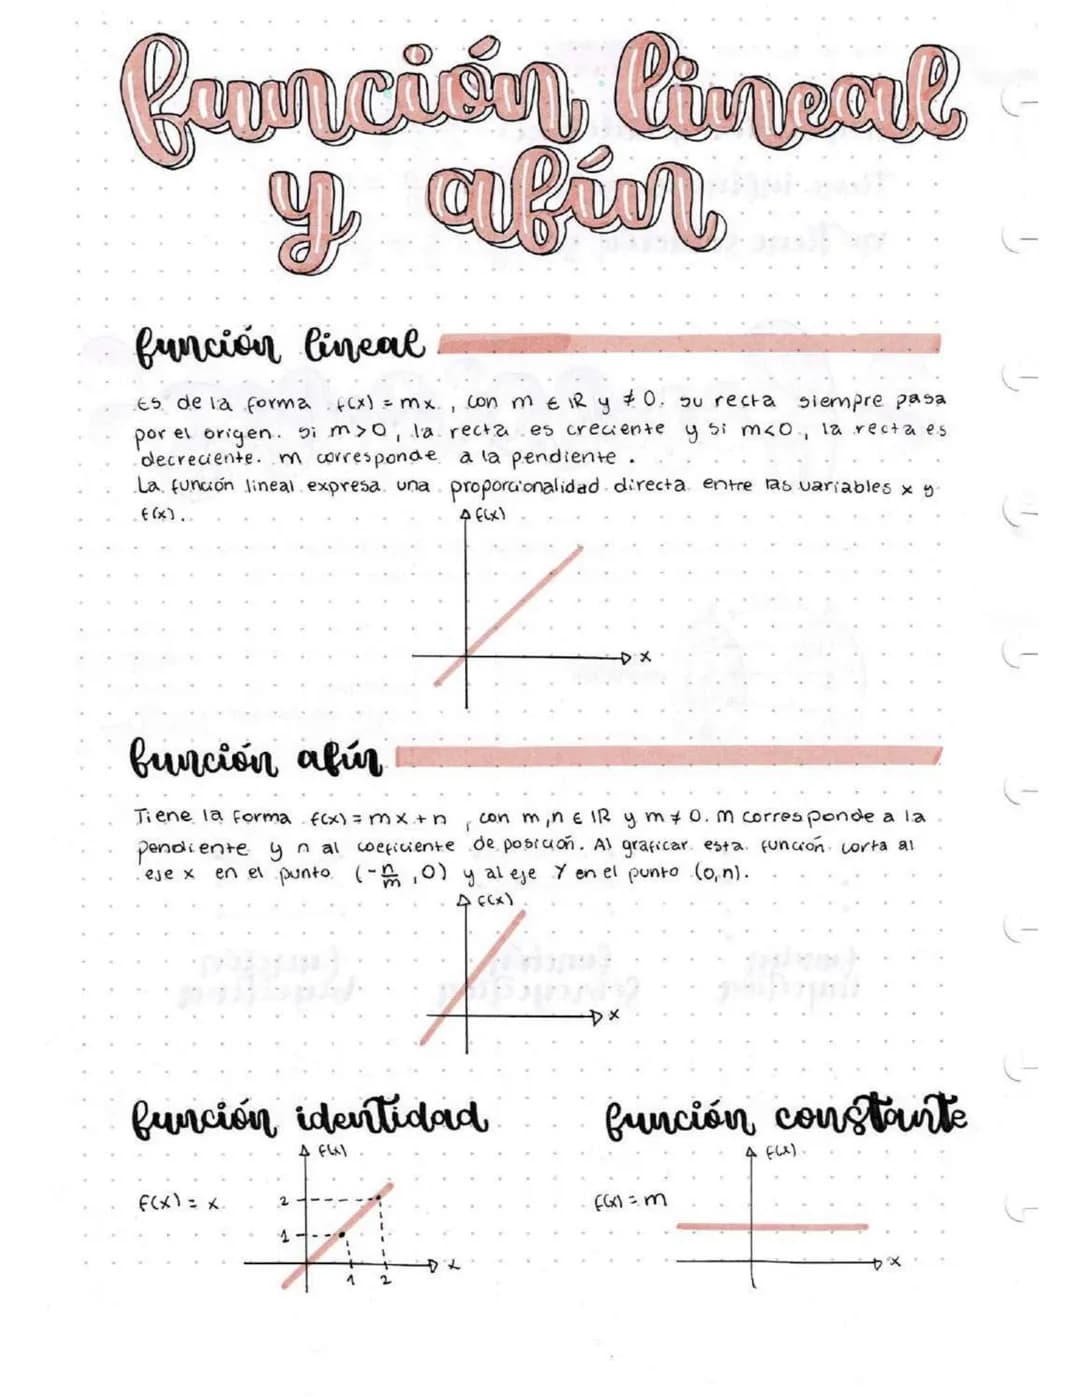 función lineal
y afín
función lineal
Es de la forma f(x) = mx, con m ∈ ℝ y ≠ 0. su recta siempre pasa
por el origen. si m>0, la recta es creciente y si m<0, la recta es
decreciente. m corresponde a la pendiente.
La función lineal expresa una proporcionalidad directa entre las variables x y
f(x).
f(x)
x
función afín
Tiene la forma f(x) = mx + n, con m,n ∈ ℝ y m ≠ 0. m corresponde a la
pendiente y n al coeficiente de posición. Al graficar esta función corta al
eje x en el punto (-n/m, 0) y al eje Y en el punto (0,n).
f(x)
x
función identidad
función constante
f(x)
f(x)
f(x) = x
2
f(x) = m
1
x
x
1 2